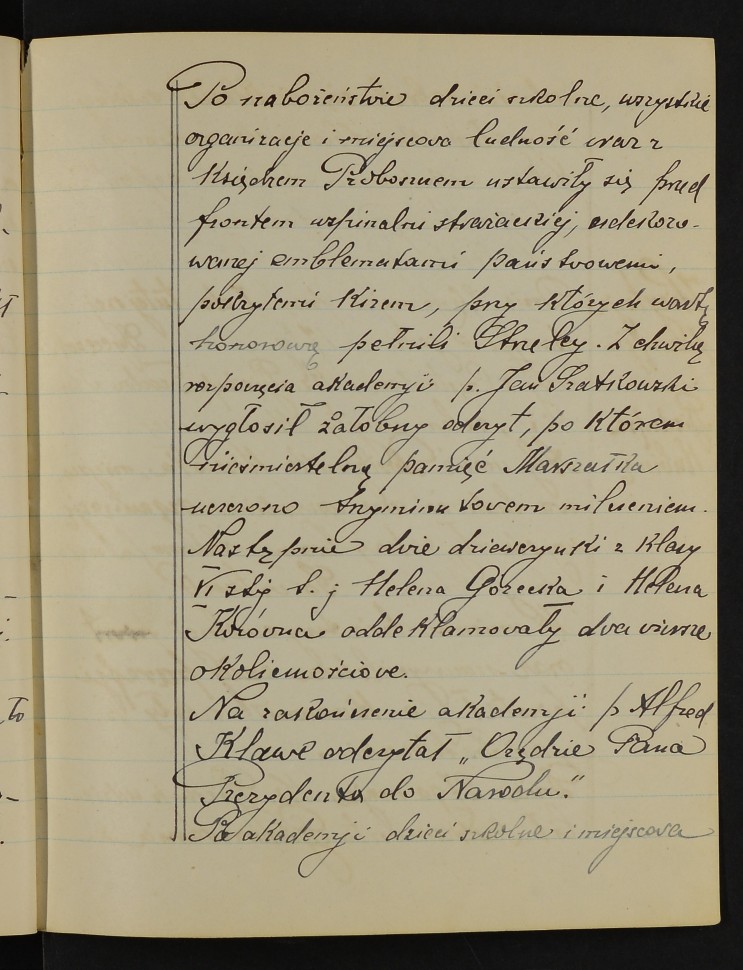 Po nabożeństwie dzieci szkolne, wszystkie
organizacje i miejscowa ludność wraz z
Księdzem Proboszczem ustawiły się przed
frontem wspinalni strażackiej, udekoro-
wanej emblematami państwowemi,
pokrytemi kirem, przy których wartę
honorową pełnili Strzelcy. Z chwilą
rozpoczęcia akademji p. Jan Szatkowski
wygłosił żałobny odczyt, po którem
nieśmiertelną pamięć Marszałka
uczczono trzyminutowem milczeniem.
Następnie dwie dziewczynki z klasy
VI stej t. j Helena Górecka i Helena
oddeklamowały dwa wiersze
okolicznościowe.
Na zakończenie akademji p Alfred
Klawe odczytał „Orędzie Pana
Prezydenta do Narodu."
Po akademji dzieci szkolne i miejscowa